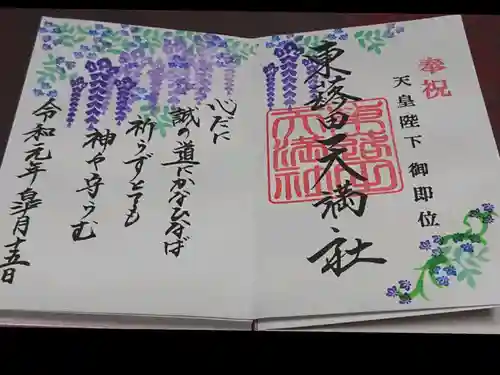 奉祝
天皇陛下 御即位
東蕗田天満社
東蕗田
天満社
心だに
誠の道にかなひなば
祈らずとても
神や守らむ
令和元年 皐月十五日